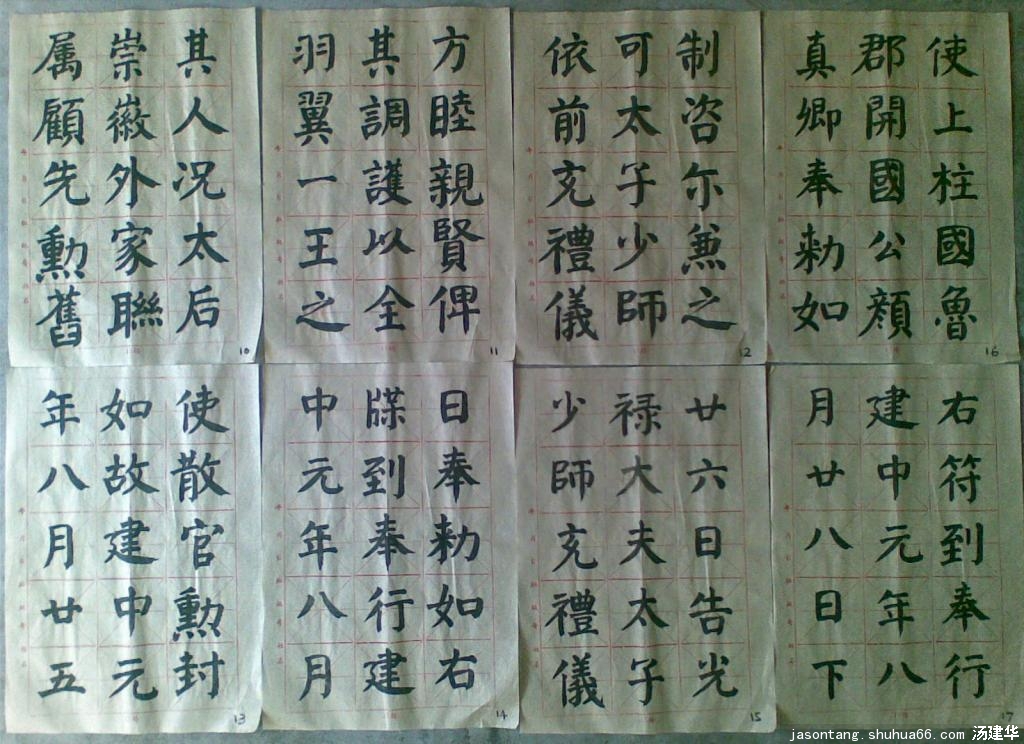 其人况太后
崇徽外家聯
属顧先勲舊
10
方睦親賢俾
其調護以全
羽翼一王之
11
制咨尓兼之
可太子少師
依前充禮儀
12
使上柱國魯
郡開國公顔
真卿奉勅如
16
使散官勲封
如故建中元
年八月廿五
13
日奉勅如右
牒到奉行建
中元年八月
14
廿六日告光
禄大夫太子
少師充禮儀
15
右符到奉行
建中元年八
月廿八日下
17
jasontang.shuhua66.com 汤建华